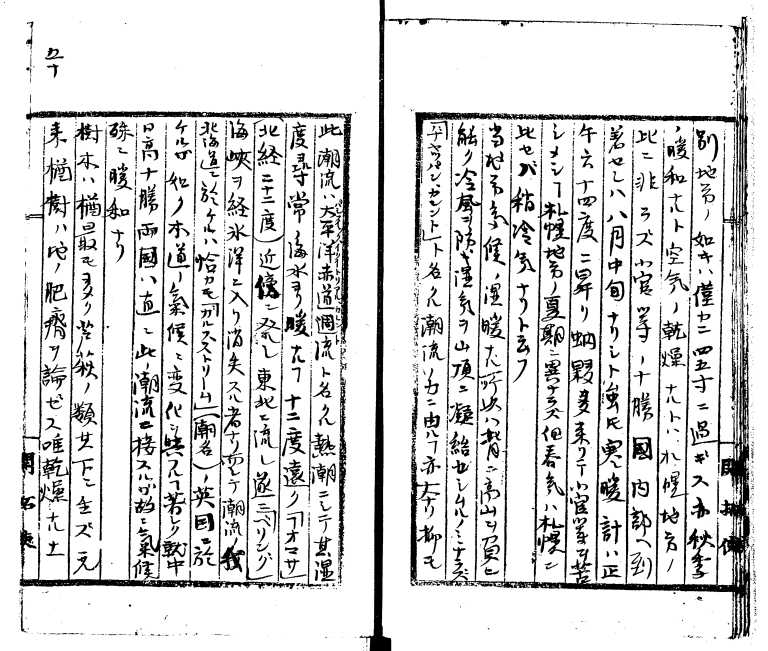 別地方ノ如キハ僅カニ四五寸ニ過ギス亦秋季
ノ暖和ナルト空気ノ乾燥ナルトハ札幌地方ノ
比ニ非ラズ小官等ノ十勝國内部ヘ到
着セシハ八月中旬ナリシト雖モ寒暖計ハ正
午六十四度ニ昇リ蚋夥多来リテ小官等ヲ苦
シメシ「札幌地方ノ夏期ニ異ナラズ但春気ハ札幌ニ
比セバ稍冷気ナリト云フ
当地方気候ノ湿暖ナル所以ハ背ニ高山ヲ負ヒ
能ク冷風ヲ防ギ湿気ヲ山頂ニ凝結セシムルノミナラズ
ト名クル潮流ノ力ニ由ル「亦大ナリ抑モ
開拓使
五十
此潮流ハ太平洋赤道週流ト名クル熱潮ニシテ其湿
度尋常ノ海水ヨリ暖ナル「十二度遠ク「ヲオマサ」
(北経二十二度)近傍ニ発シ東北ニ流レ遂ニ「ベリング」
海峡ヲ経氷洋ニ入リ消失スル者ナリ而シテ潮流我
北海道ニ於ケルハ恰カモ「ガルフストリーム」(潮名)ノ英国ニ於
ケルガ如ク本道ノ氣候ニ変化ヲ與フル「著シク就中
日高十勝両國ハ直ニ此ノ潮流ニ接スルガ故ニ氣候
殊ニ暖和ナリ
樹木ハ楢最モ多ク芝萩ノ類其下ニ生ズ元
来楢樹ハ地ノ肥瘠ヲ論ゼス唯乾燥ナル土
開拓使